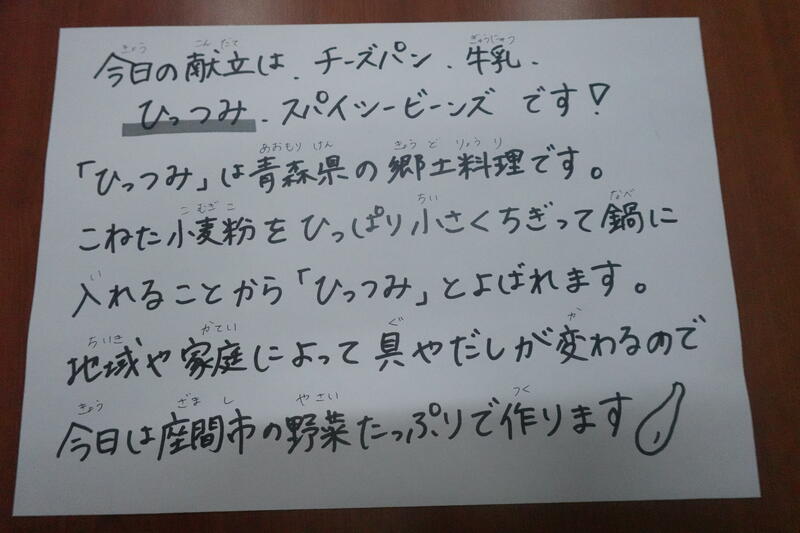 今日の献立は、チーズパン、牛乳、
ひっつみ、スパイシービーンズ です!
「ひっつみ」は青森県の郷土料理です。
こねた小麦粉をひっぱり小さくちぎって鍋に
入れることから「ひっつみ」とよばれます。
地域や家庭によって具やだしが変わるので
今日は座間市の野菜たっぷりで作ります